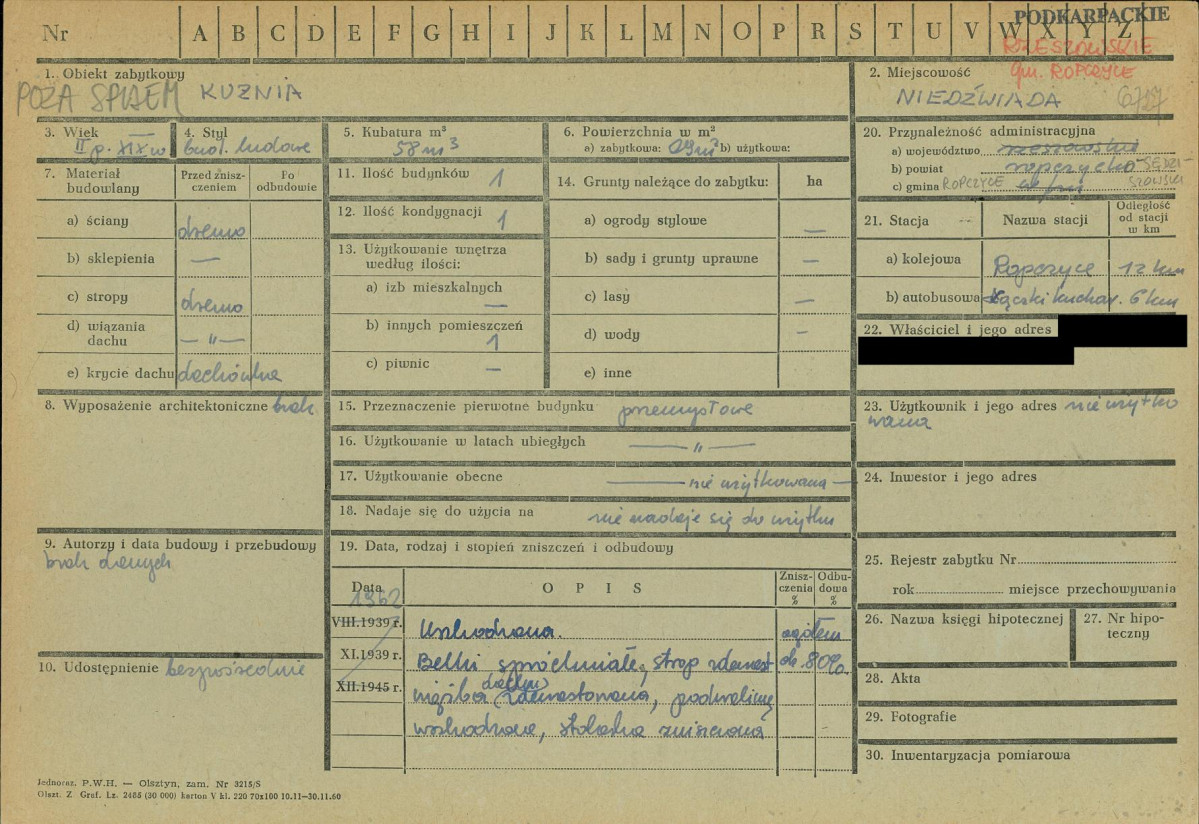 PODKARPACKIE
Nr A B C D E F G H I J K L M N O P R S T U V W X Y Z
RZESZOWSKIE
gm. ROPCZYCE
1. Obiekt zabytkowy
POZA SPISEM KUZNIA
2. Miejscowość
NIEDŹWIADA 6727
3. Wiek
II p. XIX w
4. Styl
bud. ludowe
5. Kubatura m³
58 m³
6. Powierzchnia w m²
a) zabytkowa: 29 m² b) użytkowa:
20. Przynależność administracyjna
a) województwo rzeszowskie
b) powiat ropczycko-SĘDZI-
c) gmina ROPCZYCE SZOWSKI
7. Materiał budowlany
Przed zniszczeniem
Po odbudowie
a) ściany drewno
b) sklepienia —
c) stropy drewno
d) wiązania dachu — „ —
e) krycie dachu dachówka
11. Ilość budynków 1
12. Ilość kondygnacji 1
13. Użytkowanie wnętrza według ilości:
a) izb mieszkalnych —
b) innych pomieszczeń 1
c) piwnic —
14. Grunty należące do zabytku: ha
a) ogrody stylowe —
b) sady i grunty uprawne —
c) lasy —
d) wody —
e) inne
21. Stacja
Nazwa stacji
Odległość od stacji w km
a) kolejowa Ropczyce 12 km
b) autobusowa Łączki Kuchar. 6 km
22. Właściciel i jego adres
8. Wyposażenie architektoniczne brak
15. Przeznaczenie pierwotne budynku przemysłowe
16. Użytkowanie w latach ubiegłych — „ —
17. Użytkowanie obecne — nie użytkowana —
18. Nadaje się do użycia na nie nadaje się do użytku
23. Użytkownik i jego adres nie użytko
wana
24. Inwestor i jego adres
9. Autorzy i data budowy i przebudowy
brak danych
10. Udostępnienie bezpośrednie
19. Data, rodzaj i stopień zniszczeń i odbudowy
Data
OPIS
Zniszczenia %
Odbudowa %
1962
VIII.1939 r. Uszkodzona. ogółem
XI.1939 r. Belki spróchniałe, strop zdewast ok. 80%.
XII.1945 r. więźba dachu zdewastowana, podwaliny
uszkodzone, stolarka zniszczona
25. Rejestr zabytku Nr
rok miejsce przechowywania
26. Nazwa księgi hipotecznej
27. Nr hipoteczny
28. Akta
29. Fotografie
30. Inwentaryzacja pomiarowa
Jednoraz. P.W.H. — Olsztyn, zam. Nr 3215/S
Olszt. Z Graf. Lz. 2485 (30 000) karton V kl. 220 70x100 10.11—30.11.60